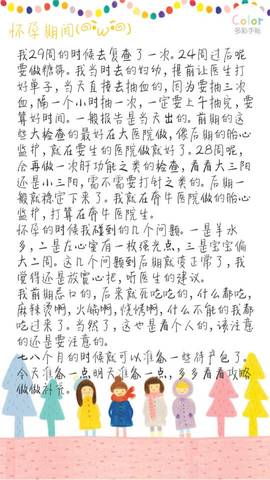 怀孕期间(๑˙ω˙๑)
Color
多彩手帐
我29周的时候去复查了一次。24周过后呢
要做糖筛。我当时去的妇幼，提前让医生打
好单子，当天直接去抽血的，因为要抽三次
血，隔一个小时抽一次，一定要上午抽完，要
算好时间。一般报告是当天出的。前期的这
些大检查的最好在大医院做，像后期的胎心
监护，就在要生的医院做就好了。28周呢，
会再做一次肝功能之类的检查，看看大三阳
还是小三阳，需不需要打针之类的。后期一
般就稳定下来了。我就在犀牛医院做的胎心
监护，打算在犀牛医院生。
怀孕的时候我碰到的几个问题。一是羊水
多，二是左心室有一枚强光点，三是宝宝偏
大二周。这几个问题到后期就变正常了，我
觉得还是放宽心把，听医生的建议。
我前期忌口的，后来就死吃吃的，什么都吃，
麻辣烫啊，火锅啊，烧烤啊，什么不能的我都
吃过来了。当然了，这也是看个人的，该注意
的还是要注意的。
七八个月的时候就可以准备一些待产包了。
今天准备一点明天准备一点，多多看看攻略
做做补充。